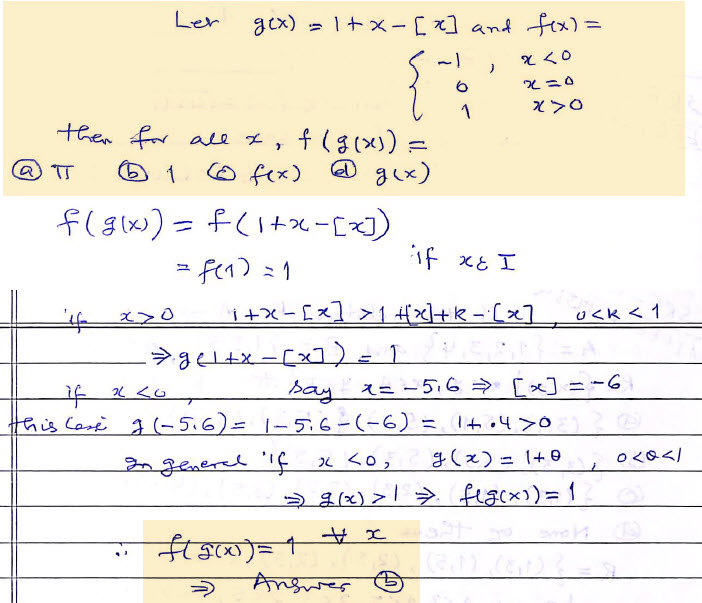 Let g(x) = 1 + x - [x] and f(x) =
{ -1 , x < 0
0 x = 0
1 x > 0
then for all x, f(g(x)) =
(a) π (b) 1 (c) f(x) (d) g(x)
f(g(x)) = f(1+x-[x])
= f(1) = 1 if x ε I
if x > 0 1+x-[x] > 1+[x]+k-[x] , 0<k<1
⇒ g(1+x-[x]) = 1
if x < 0, say x = -5.6 ⇒ [x] = -6
this case g(-5.6) = 1-5.6-(-6) = 1+.4 > 0
In general if x < 0, g(x) = 1+θ , 0<θ<1
⇒ g(x) > 1 ⇒ f(g(x)) = 1
∴ f(g(x)) = 1 ∀ x
⇒ Answer (b)